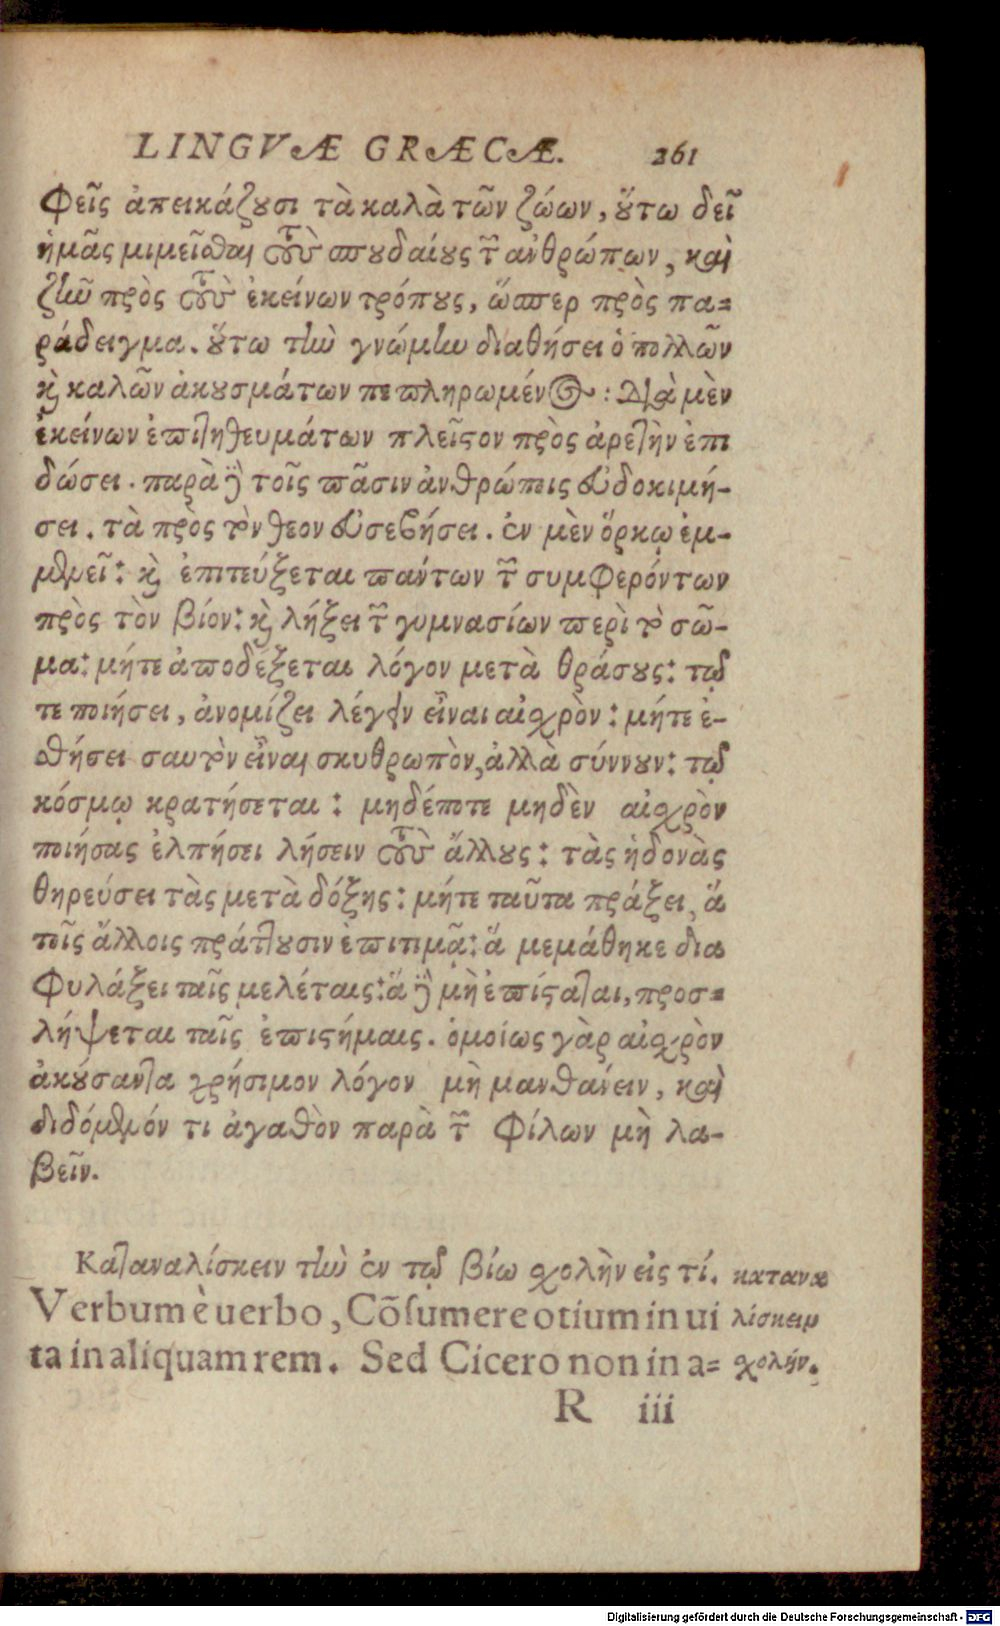 LINGVÆ GRÆCÆ. 261
φεῖς ἀπεικάζουσι τὰ καλὰ τῶν ζώων, οὕτω δεῖ
ἡμᾶς μιμεῖσθαι τοὺς σπουδαίους τῶν ἀνθρώπων, καὶ
ζῆν πρὸς τοὺς ἐκείνων τρόπους, ὥσπερ πρὸς πα=
ράδειγμα. οὕτω τὴν γνώμην διαθήσει ὁ πολλῶν
καὶ καλῶν ἀκουσμάτων πεπληρωμένος: Διὰ μὲν
ἐκείνων ἐπιτηδευμάτων πλεῖστον πρὸς ἀρετὴν ἐπι
δώσει. παρὰ δὲ τοῖς πᾶσιν ἀνθρώποις εὐδοκιμή-
σει. τὰ πρὸς τὸν θεὸν εὐσεβήσει. ἐν μὲν ὅρκῳ ἐμ-
μενεῖ: καὶ ἐπιτεύξεται πάντων τῶν συμφερόντων
πρὸς τὸν βίον: καὶ λήξει τῶν γυμνασίων περὶ τὸ σῶ-
μα: μήτε ἀποδέξεται λόγον μετὰ θράσους: τῷ
τε ποιήσει, ἃ νομίζει λέγειν εἶναι αἰσχρὸν: μήτε ἐ-
θήσει σαυτὸν εἶναι σκυθρωπὸν, ἀλλὰ σύννουν: τῷ
κόσμῳ κρατήσεται: μηδέποτε μηδὲν αἰσχρὸν
ποιήσας ἐλπήσει λήσειν τοὺς ἄλλους: τὰς ἡδονὰς
θηρεύσει τὰς μετὰ δόξης: μήτε ταῦτα πράξει, ἅ
τοῖς ἄλλοις πράττουσιν ἐπιτιμᾷ: ἅ μεμάθηκε δια
φυλάξει ταῖς μελέταις: ἅ δὲ μὴ ἐπίσταται, προσ=
λήψεται ταῖς ἐπιστήμαις. ὁμοίως γὰρ αἰσχρὸν
ἀκούσαντα χρήσιμον λόγον μὴ μανθάνειν, καὶ
διδόμενόν τι ἀγαθὸν παρὰ τῶν φίλων μὴ λα-
βεῖν.
Καταναλίσκειν τὴν ἐν τῷ βίῳ σχολὴν εἰς τί. καταναλίσκειν σχολήν.
Verbum è uerbo, Cõſumere otium in ui
ta in aliquam rem. Sed Cicero non in a=
R iii
Digitalisierung gefördert durch die Deutsche Forschungsgemeinschaft - DFG